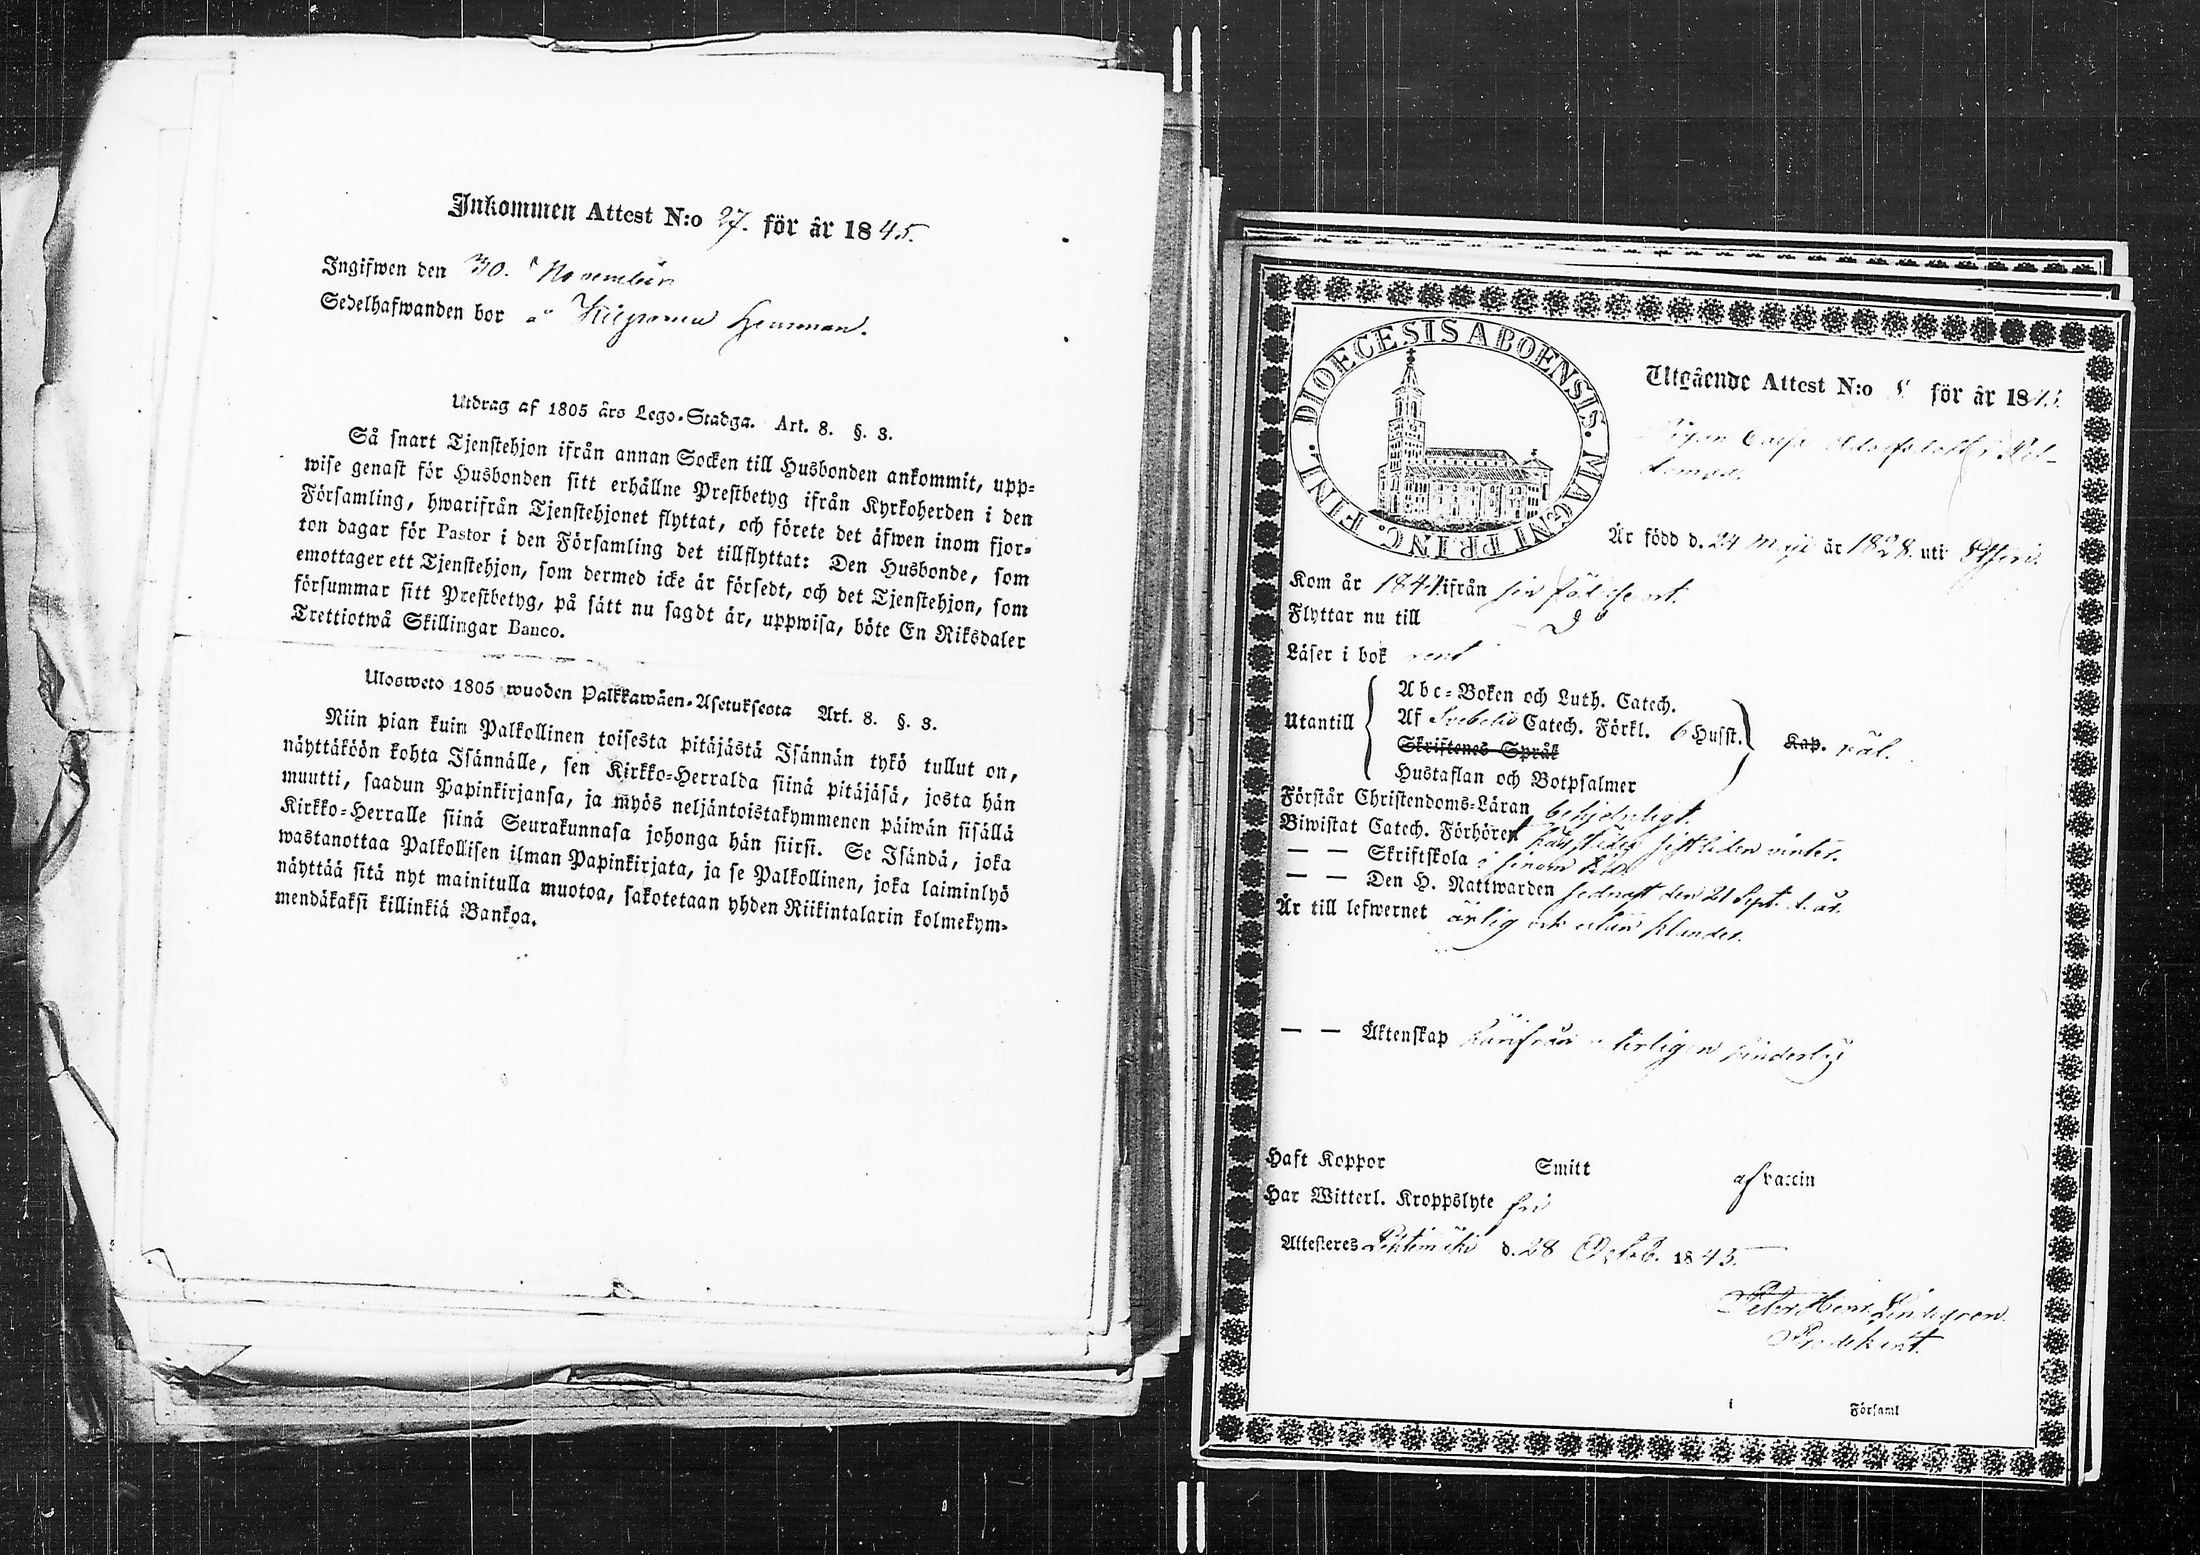 Inkommen Attest N:o 27. för år 1845.
Ingifwen den 30. November
Sedelhafwanden bor å Hemman.
Utdrag af 1805 års Lego-Stadga. Art. 8. §. 3.
Så snart Tjenstehjon ifrån annan Socken till Husbonden ankommit, upp-
wise genast för Husbonden sitt erhållne Prestbetyg ifrån Kyrkoherden i den
Församling, hwarifrån Tjenstehjonet flyttat, och förete det äfwen inom fjor-
ton dagar för Pastor i den Församling det tillflyttat: Den Husbonde, som
emottager ett Tjenstehjon, som dermed icke är försedt, och det Tjenstehjon, som
försummar sitt Prestbetyg, på sätt nu sagdt är, uppwisa, böte En Riksdaler
Trettiotwå Skillingar Banco.
Ulosweto 1805 wuoden Palkkawäen-Asetuksesta Art. 8. §. 3.
Niin pian kuin Palkollinen toisesta pitäjästä Isännän tykö tullut on,
näyttäköön kohta Isännälle, sen Kirkko-Herralda siinä pitäjäsä, josta hän
muutti, saadun Papinkirjansa, ja myös neljäntoistakymmenen päiwän sisällä
Kirkko-Herralle siinä Seurakunnasa johonga hän siirsi. Se Isändä, joka
wastanottaa Palkollisen ilman Papinkirjata, ja se Palkollinen, joka laiminlyö
näyttää sitä nyt mainitulla muotoa, sakotetaan yhden Riikintalarin kolmekym-
mendäkaksi killinkiä Bankoa.
DIOECESIS ABOENSIS. MAGNI PRINC. FINL.
Utgående Attest N:o för år 1845.
Pigan
Är född d. 24 Maji år 1828. uti
Kom år 1841 ifrån sin födelse ort.
Flyttar nu till
Läser i bok rent
Utantill
Abc-Boken och Luth. Catech.
Af Svebelii Catech. Förkl. 6 Husst.
Skriftenes Språk
Hustaflan och Botpsalmer
Kap. väl.
Förstår Christendoms-Läran behjelpligt.
Biwistat Catech. Förhören sistliden vinter.
— — Skriftskola
— — Den H. Nattwarden sednast den 21 Sept. d. år.
Är till lefwernet ärlig och utan klander.
— — Äktenskap härifrån hinderlös
Haft Koppor Smitt af vaccin
Har Witterl. Kroppslyte fri
Attesteres d. 28 Octob. 1845.
Petr. Henr. Lindegren.
Predikant.
Församl